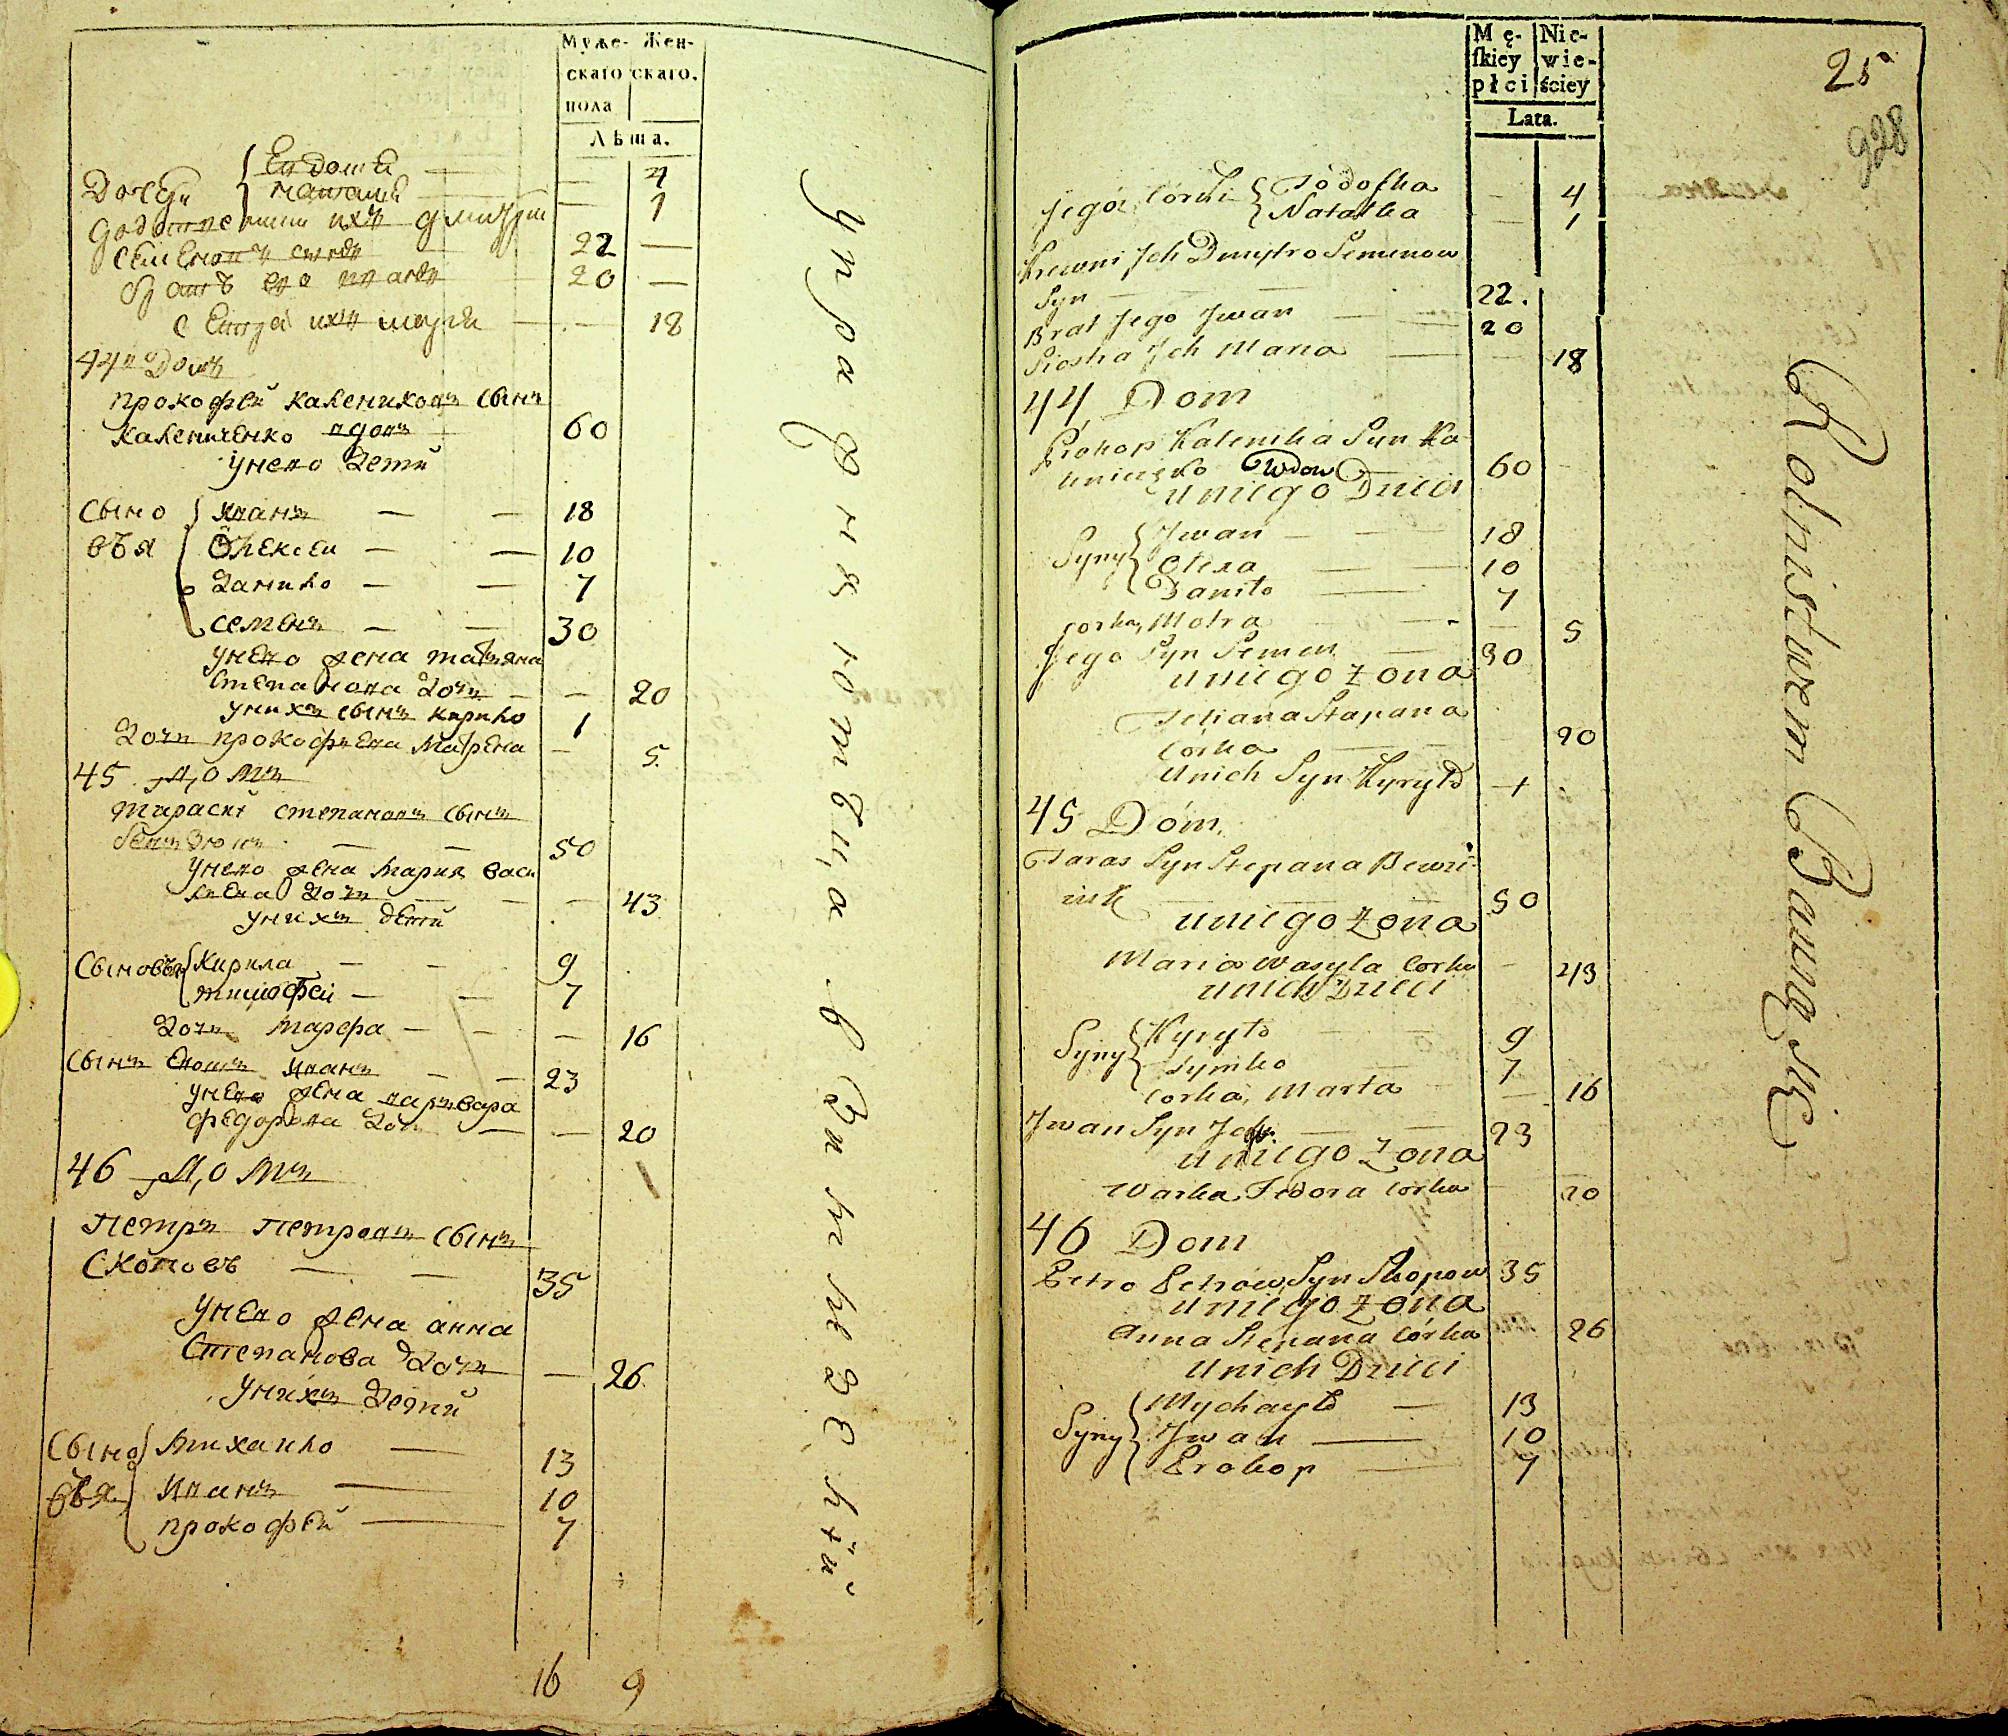 Муже- Жен-
скаго скаго.
пола
Лѣта.
Дочери { Евдотѣя — — 4
Наталия — — 1
Родственникъ ихъ Дмитрий
Семеновъ сынъ 22 —
братъ его Иванъ — 20 —
сестра ихъ Мария — — 18
44й Домъ
Прокофей Калениковъ сынъ
Калениченко вдовъ 60
У него дети
Сыно { Иванъ — — 18
въя Олексеи — — 10
Данило — — 7
Семенъ — — 30
У него жена Татьяна
Степанова дочь — — 20
У нихъ сынъ Кирило 1
Дочь Прокофьева Мафрена — 5.
45 Домъ
Тараский Степановъ сынъ
— — 50
У него жена Мария Васи
льева дочь — — — 43
У нихъ дети
Сыновья { Кирила — — 9
Тимофеи — — 7
Дочь Марфа — — — 16
Сынъ Иванъ — — 23
У него жена Варвара
Федорова дочь — — 20
46 Домъ
Петръ Петровъ сынъ
Скоповъ — — 35
У него жена Анна
Степанова дочь — 26.
У нихъ дети
Сыно { Михаило — 13
вья Иванъ — 10
Прокофей — 7
16 9
Упражняются в землед
Mę- Nie-
ſkiey wie-
płci ściey
Lata.
25
928
Jego Córki { Fodoſka — 4
Natalka — 1
Krewni Jch Dmytro Semenow
Syn — — — 22.
Brat Jego Jwan — — 20
Siostra Jch Maria — — 18
44 Dom
Prokop Kalenika Syn Ka-
leniczęko Wdow 60 —
U niego Dzieci
Syny { Jwan — — — 18
Olexa — — 10
Daniło — — 7
corka, Motra — — — 5
Jego Syn Semen — 30
U niego Żona
Tetiana Stapana
Córka — — 20
U nich Syn Kyryło — 1
45 Dóm.
Taras Syn Stepana Bewzi-
iuk — — 50
U niego Żona
Maria Wasyla Corka — 43
U nich Dzieci
Syny { Kyryło — — 9
Tymko — — 7
Corka, Marta — — 16
Jwan Syn Jch — — 23
U niego Żona
Warka Fedora Córka — 20
46 Dom
Petro Petrów Syn Skopow 35
U niego Żona
Anna Stepana Córka — 26
U nich Dzieci
Syny { Mychayło — 13
Jwan — 10
Prokop — 7
Rolnistwem Bawią się